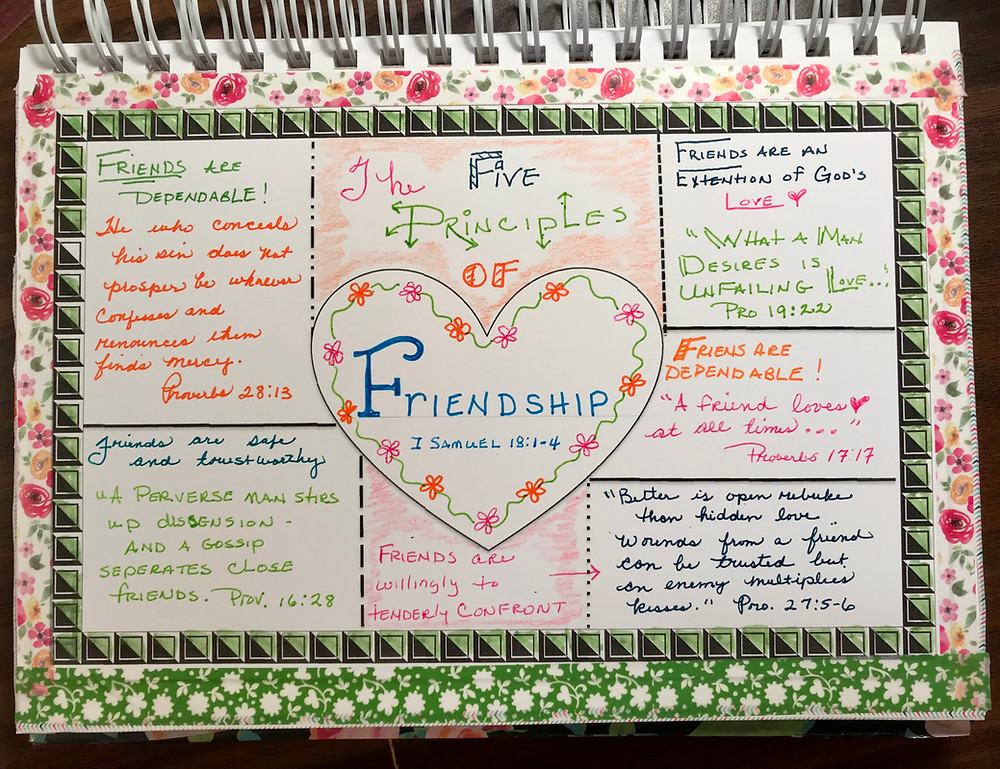 The Five
Principles
of
Friendship
I Samuel 18:1-4
Friends are
Dependable!
He who conceals
his sin does not
prosper be whoever
confesses and
renounces them
finds mercy.
Proverbs 28:13
Friends are safe
and trustworthy
"A Perverse man stirs
up dissension -
and a gossip
seperates close
friends. Prov. 16:28
Friends are
willingly to
tenderly confront
Friends are an
Extention of God's
Love
"What a Man
Desires is
unfailing Love..."
Pro 19:22
Friens are
Dependable!
"A friend loves
at all times..."
Proverbs 17:17
"Better is open rebuke
than hidden love
Wounds from a friend
can be trusted but
an enemy multiplies
kisses." Pro. 27:5-6